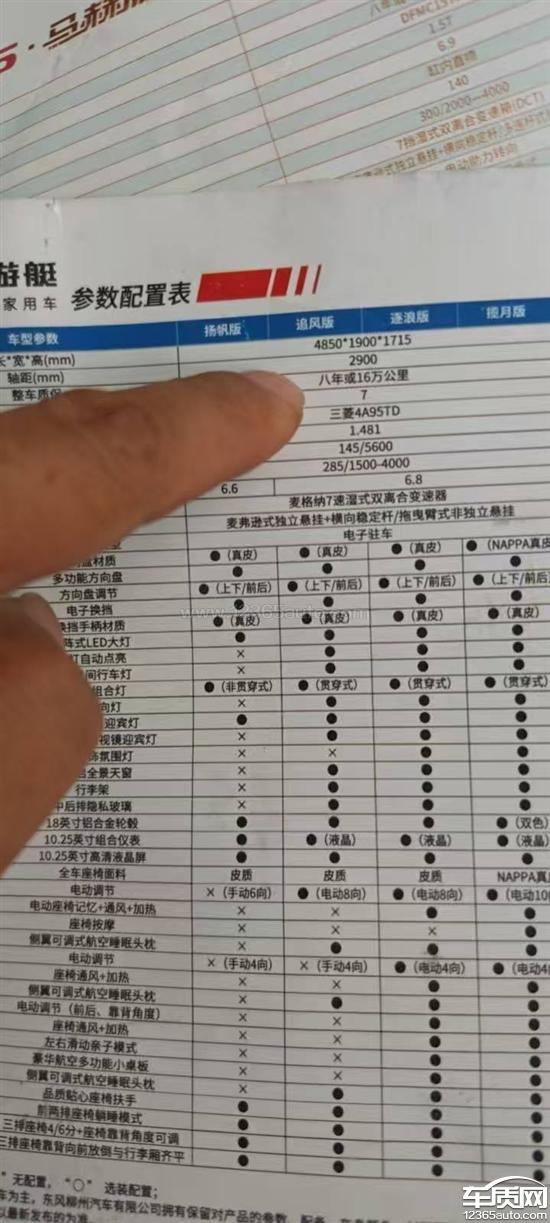 DFMC15
1.5T
6.9
缸内直喷
140
300/2000—4000
7挡湿式双离合变速箱(DCT)
电动助力转向
游艇
家用车 参数配置表
车型参数 扬帆版 追风版 逐浪版 揽月版
长*宽*高(mm) 4850*1900*1715
轴距(mm) 2900
整车质保 八年或16万公里
7
三菱4A95TD
1.481
145/5600
285/1500-4000
6.6 6.8
麦格纳7速湿式双离合变速器
麦弗逊式独立悬挂+横向稳定杆/拖曳臂式非独立悬挂
电子驻车
材质 ●(真皮) ●(真皮) ●(真皮) ●(NAPPA真皮
多功能方向盘 ● ● ● ●
方向盘调节 ●(上下/前后) ●(上下/前后) ●(上下/前后) ●(上下/前后
电子换挡 ● ● ● ●
换挡手柄材质 ●(真皮) ●(真皮) ●(真皮) ●(真皮)
阵式LED大灯 ● ● ● ●
灯自动点亮 × ● ● ●
间行车灯 × ● ● ●
组合灯 ●(非贯穿式) ●(贯穿式) ●(贯穿式) ●(贯穿式)
向灯 × ● ● ●
迎宾灯 ● ● ● ●
视镜迎宾灯 × ● ● ●
饰氛围灯 × × ● ●
全景天窗 × ● ● ●
行李架 × ● ● ●
中后排隐私玻璃 × ● ● ●
18英寸铝合金轮毂 ● ● ● ●(双色)
10.25英寸组合仪表 ● ●(液晶) ●(液晶) ●(液晶)
10.25英寸高清液晶屏 ● ● ● ●
全车座椅面料 皮质 皮质 皮质 NAPPA真皮
电动调节 ×(手动6向) ●(电动8向) ●(电动8向) ●(电动10向
电动座椅记忆+通风+加热 × × ● ●
座椅按摩 × × × ●
侧翼可调式航空睡眠头枕 × ● ● ●
电动调节 ×(手动4向) ×(手动4向) ●(电动4向) ●(电动4
座椅通风+加热 × × ● ●
侧翼可调式航空睡眠头枕 × ● ● ●
电动调节(前后、靠背角度) × × ● ●
座椅通风+加热 × × ● ●
左右滑动亲子模式 × × ● ●
豪华航空多功能小桌板 × × ● ●
侧翼可调式航空睡眠头枕 × ● ● ●
品质贴心座椅扶手 ● ● ● ●
前两排座椅躺睡模式 ● ● ● ●
三排座椅4/6分+座椅靠背角度可调 ● ● ● ●
三排座椅靠背向前放倒与行李厢齐平 ● ● ● ●
"无配置,"○"选装配置;
车为主,东风柳州汽车有限公司拥有保留对产品的参数、配备
以最新发布的为准。
www.12365auto.com
车质网
12365auto.com